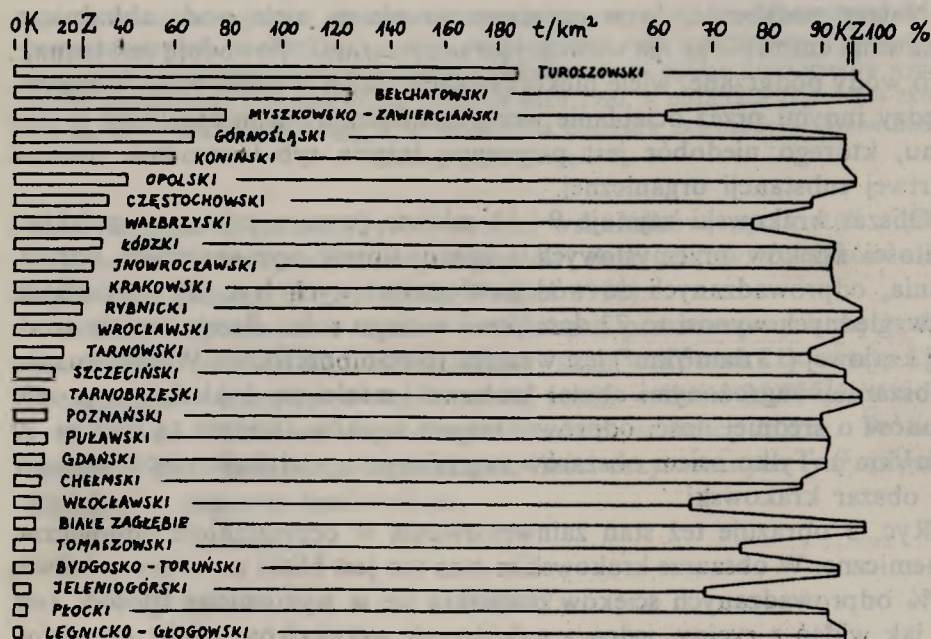 0 K 20 Z 40 60 80 100 120 140 160 180 t/km² 60 70 80 90 K Z 100 %
TUROSZOWSKI
BEŁCHATOWSKI
MYSZKOWSKO - ZAWIERCIAŃSKI
GÓRNOŚLĄSKI
KONIŃSKI
OPOLSKI
CZĘSTOCHOWSKI
WAŁBRZYSKI
ŁÓDZKI
JNOWROCŁAWSKI
KRAKOWSKI
RYBNICKI
WROCŁAWSKI
TARNOWSKI
SZCZECIŃSKI
TARNOBRZESKI
POZNAŃSKI
PUŁAWSKI
GDAŃSKI
CHEŁMSKI
WŁOCŁAWSKI
BIAŁE ZAGŁĘBIE
TOMASZOWSKI
BYDGOSKO - TORUŃSKI
JELENIOGÓRSKI
PŁOCKI
LEGNICKO - GŁOGOWSKI